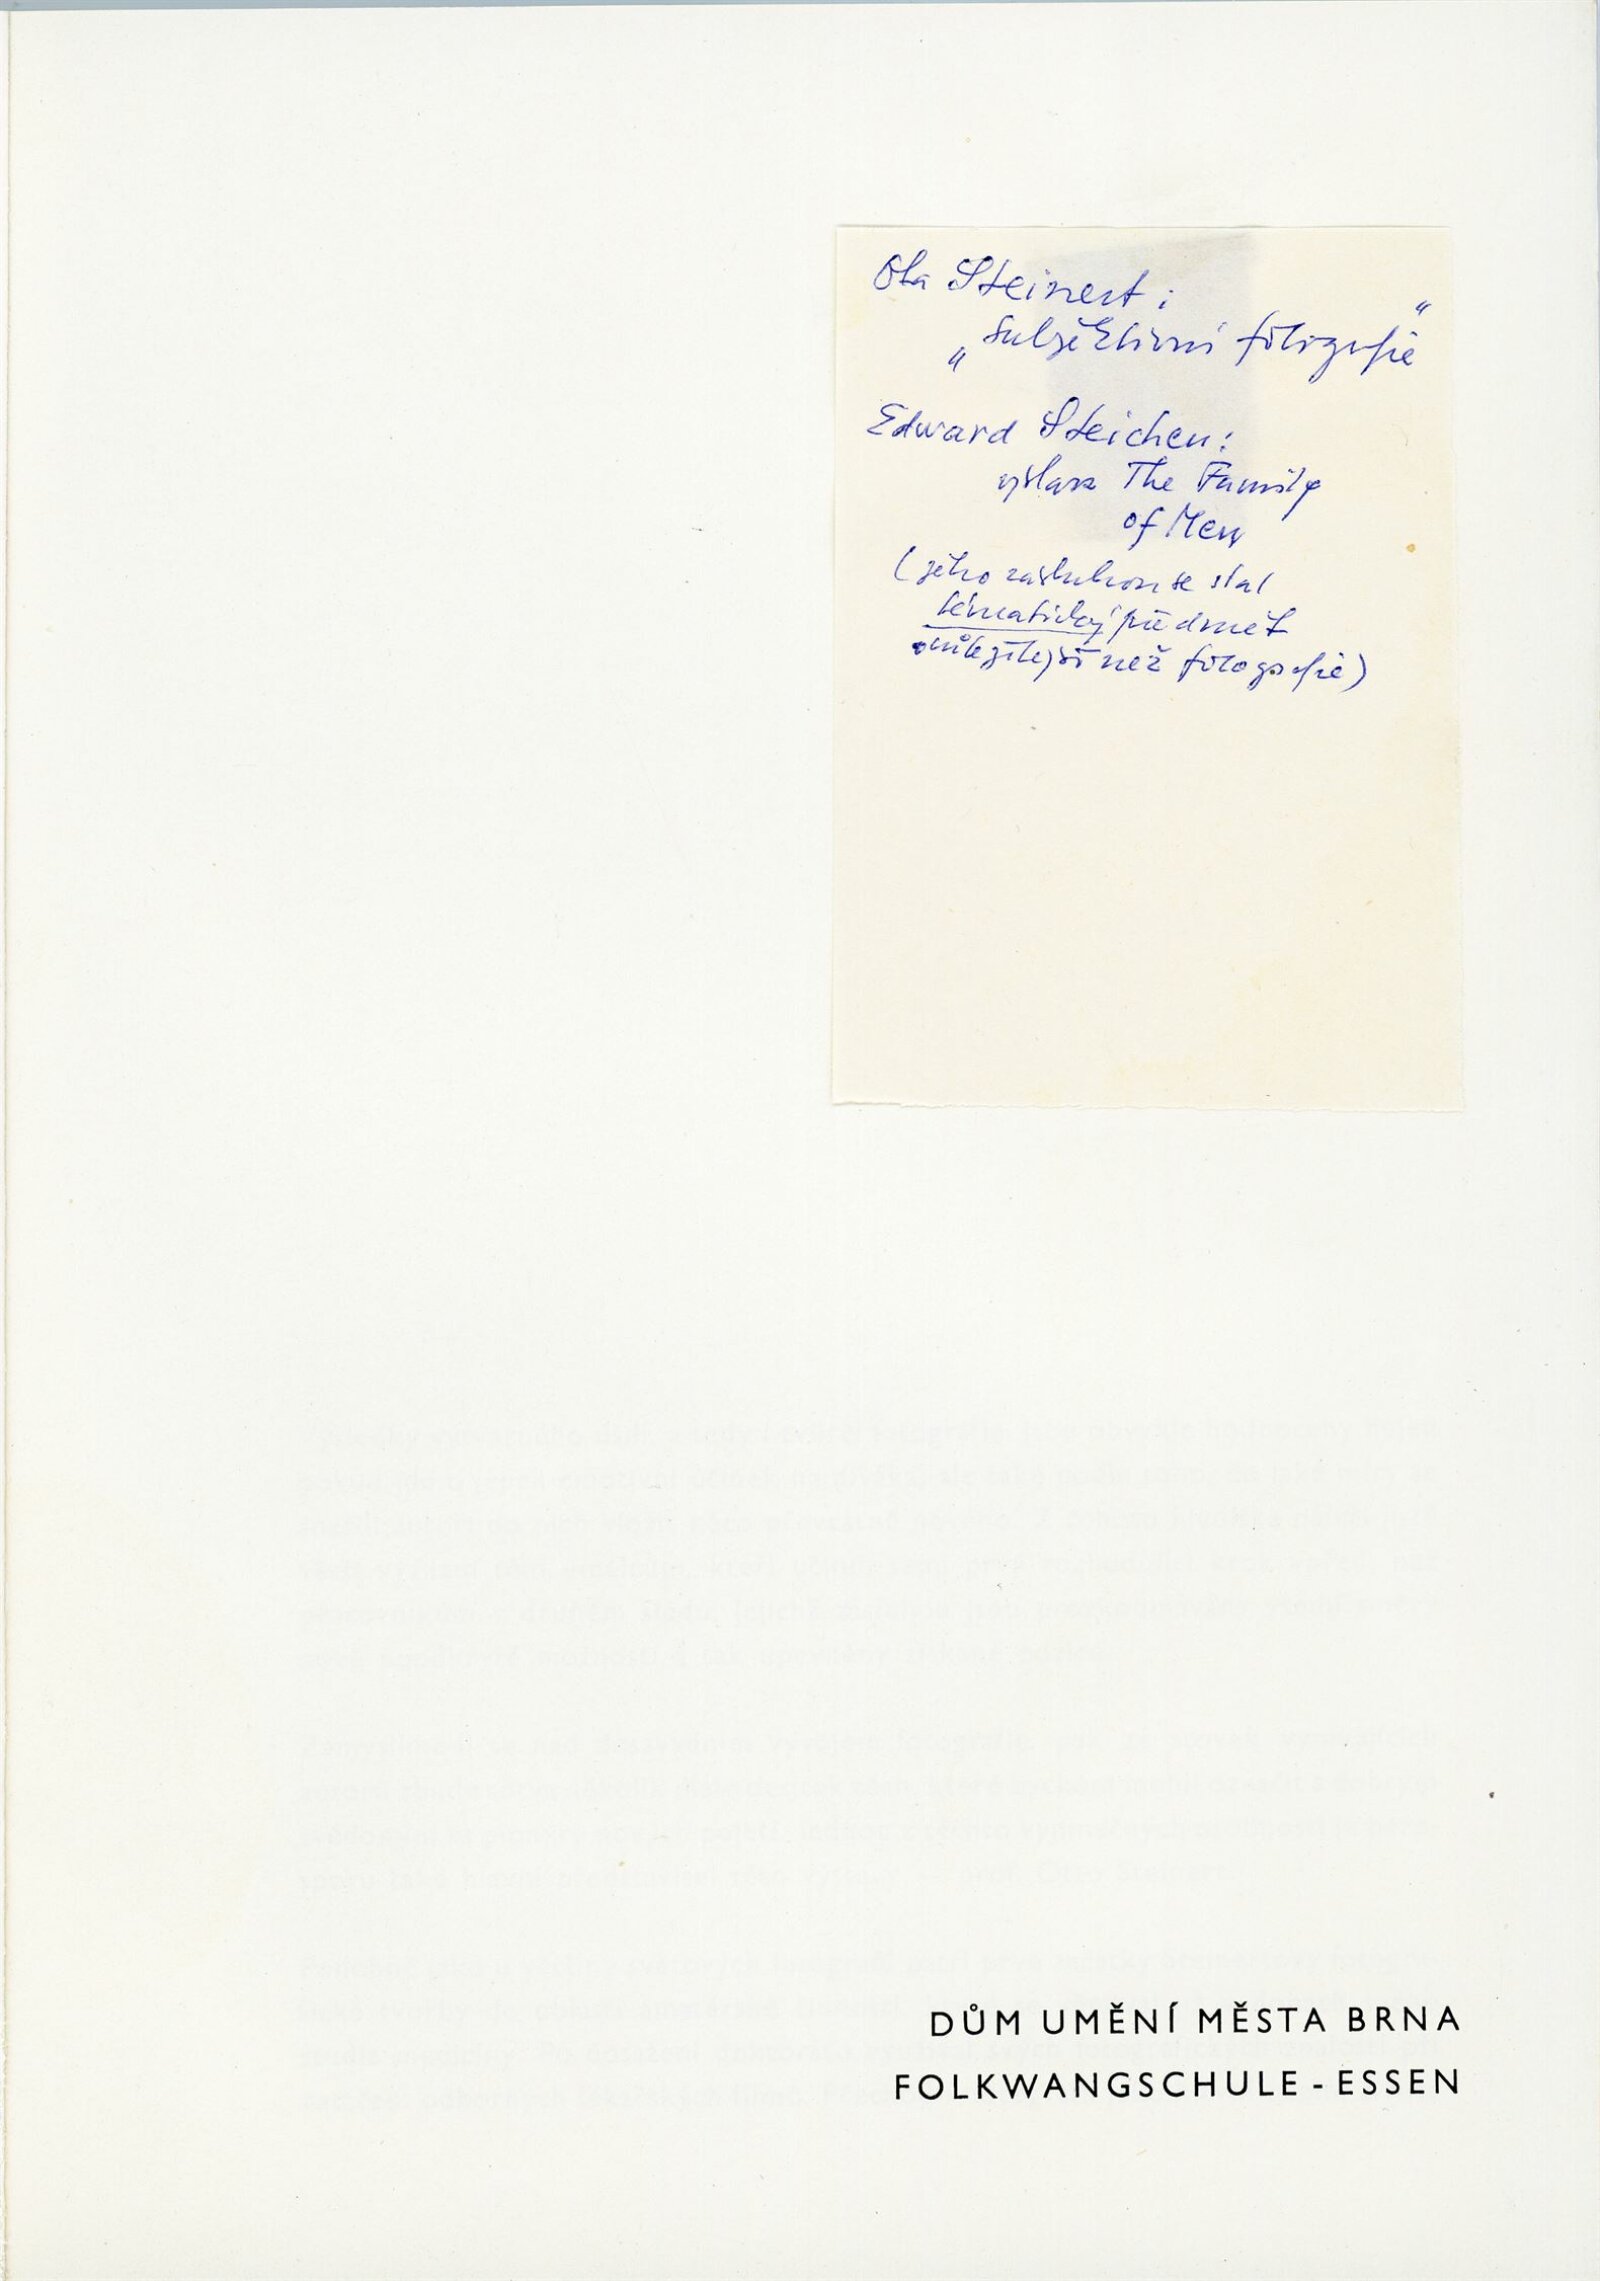 Ota Steinert:
„subjektivní fotografie“
Edward Steichen:
výstava The Family
of Men
(jeho zásluhou se stal
tématický předmět
důležitější než fotografie)
DŮM UMĚNÍ MĚSTA BRNA
FOLKWANGSCHULE - ESSEN